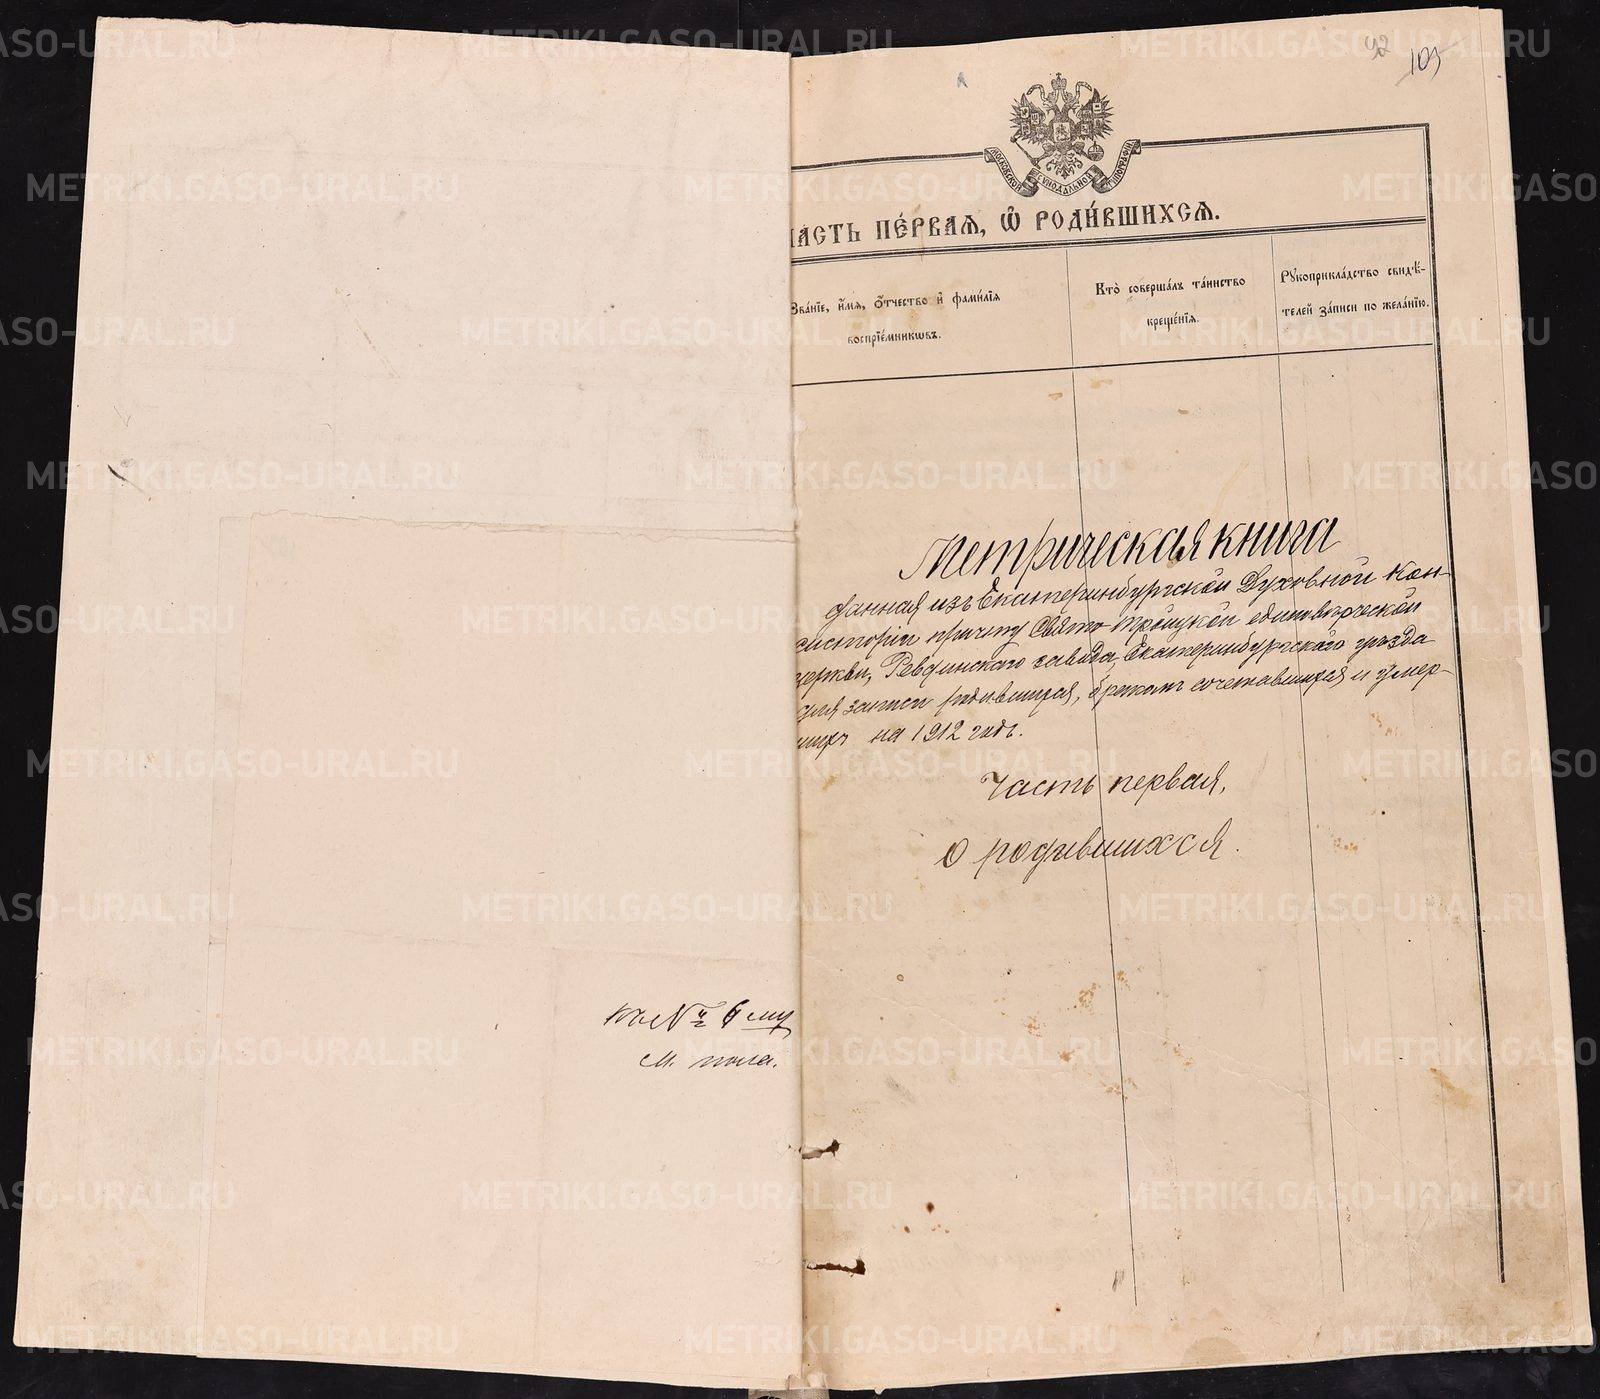 42 105
МОСКОВСКОЙ СѴНОДАЛЬНОЙ ТИПОГРАФІИ
ЧАСТЬ ПЕ́РВАѦ, Ѽ РОДИ́ВШИХСѦ.
Зва́нїе, и҆́мѧ, ѻ҆́тчество и҆ фами́лїѧ
воспрїе́мникѡвъ.
Кто̀ соверша́лъ та́инство
креще́нїѧ.
Рꙋкоприкла́дство свидѣ́-
телей за́писи по жела́нїю.
Метрическая книга
данная изъ Екатеринбургской Духовной Кон-
систоріи причту Свято-Троицкой единоверческой
церкви, Ревдинскаго завода, Екатеринбургскаго уѣзда
для записи родившихся, бракомъ сочетавшихся и умер-
шихъ на 1912 годъ.
Часть первая,
о родившихся.
Къ № 6 му
м. пола.
METRIKI.GASO-URAL.RU